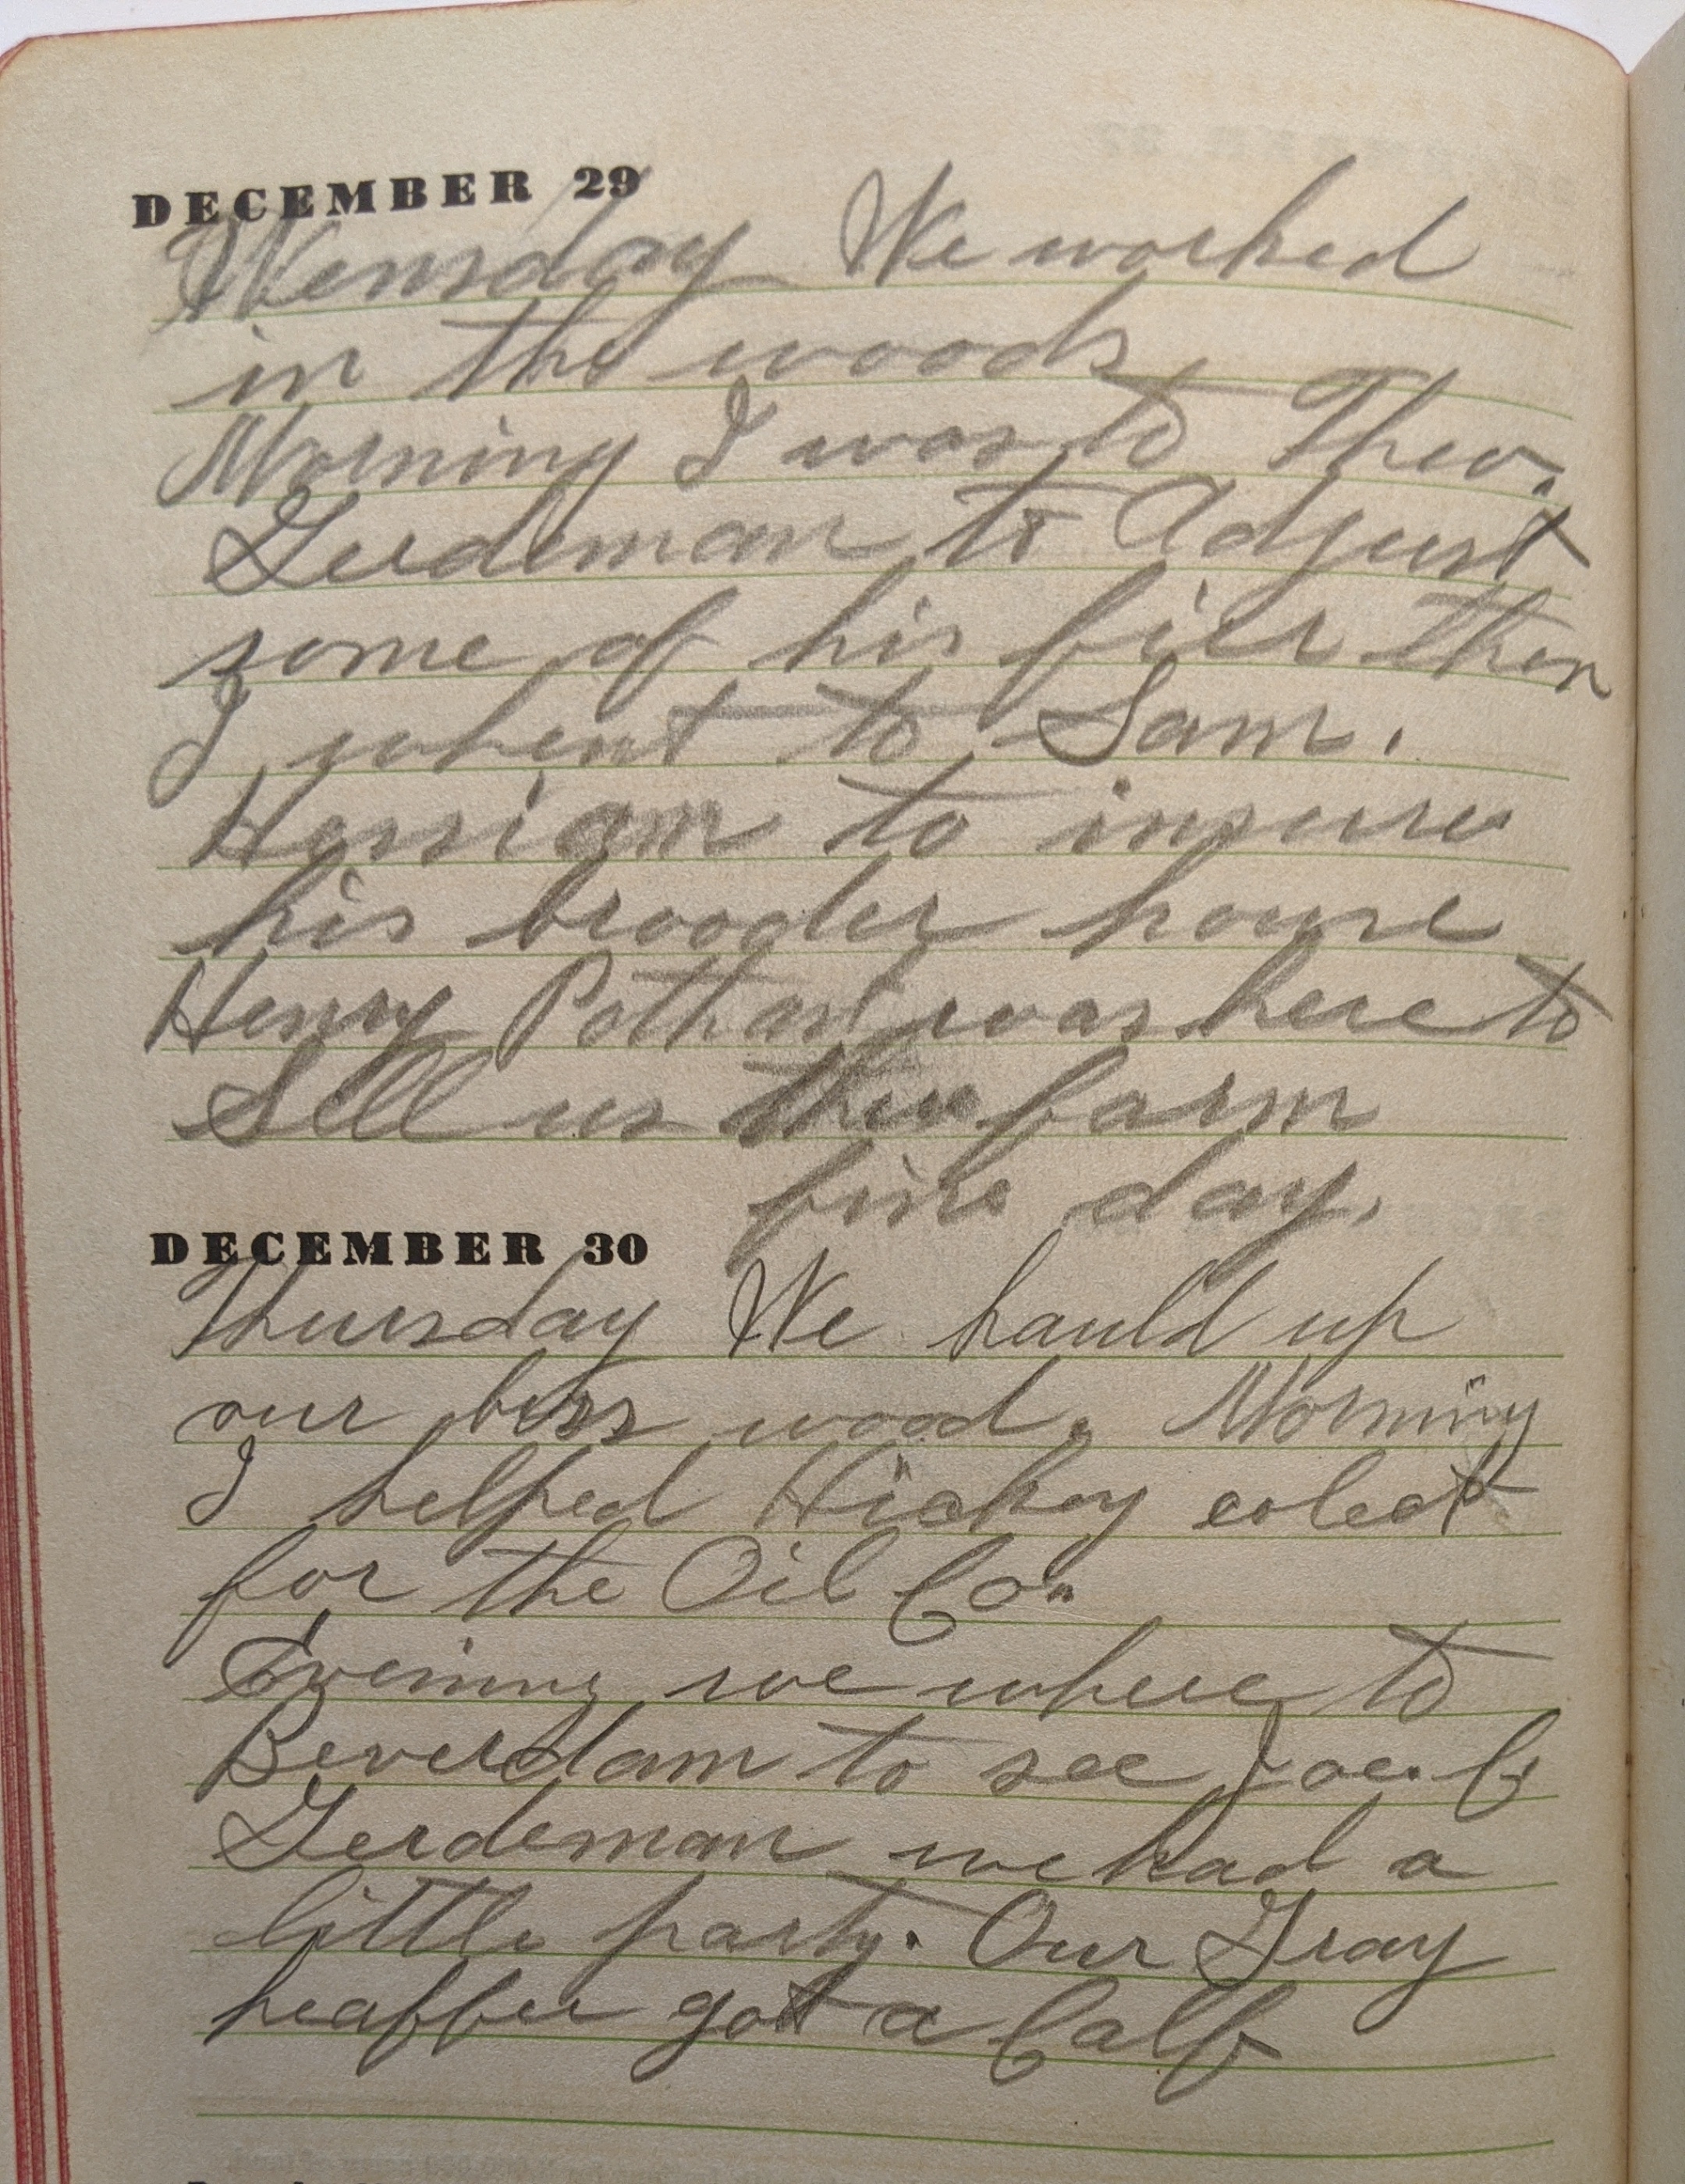 DECEMBER 29
Wensday We worked
in the woods.
Morning I was to Theo.
Gerdeman to Adjust
some of his fier then
I whent to Sam.
Hossiam to insure
his brooder house
Henry Pothast was here to
Sell us farm
fine day.
DECEMBER 30
Thursday We hauld up
our wood. Morning
I helped Hickey colect
for the Oil Co.
Evening we where to
Beverdam to see Joe. C
Gerdeman we had a
little party. Our Gray
heaffer got a Calf